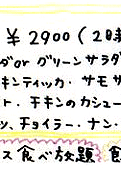 ¥2900(2時
ダorグリーンサラダ
キンティッカ・サモサ
ト・チキンのカシュー
ッ、チョイラー・ナン・
ス食べ放題 食